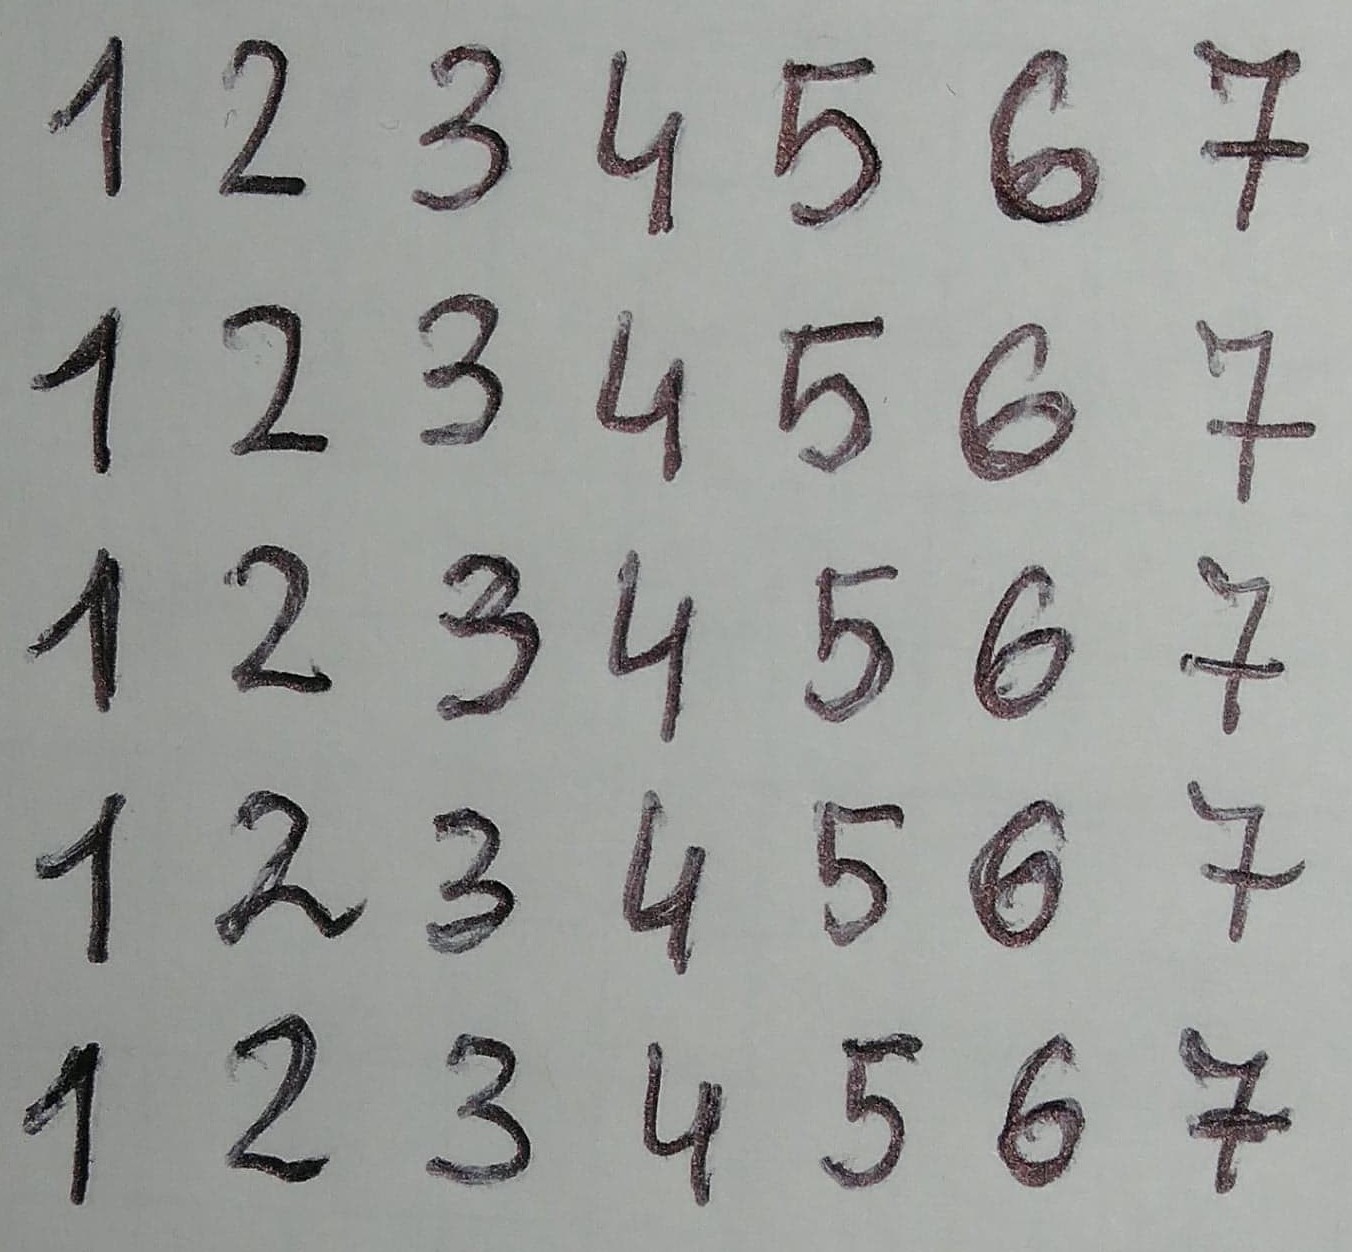 1 2 3 4 5 6 7
1 2 3 4 5 6 7
1 2 3 4 5 6 7
1 2 3 4 5 6 7
1 2 3 4 5 6 7